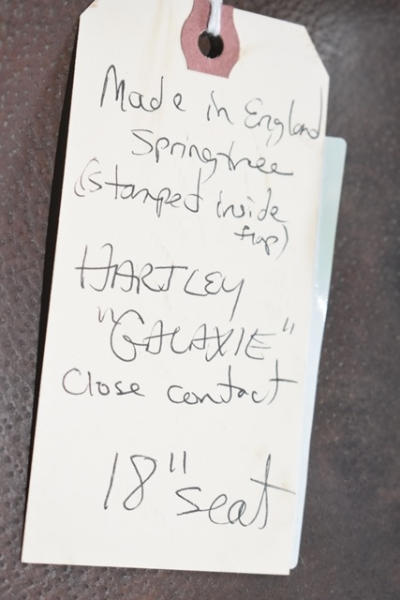 Made in England
Springtree
(stamped inside
flap)
HARTLEY
"GALAXIE"
Close contact
18" seat